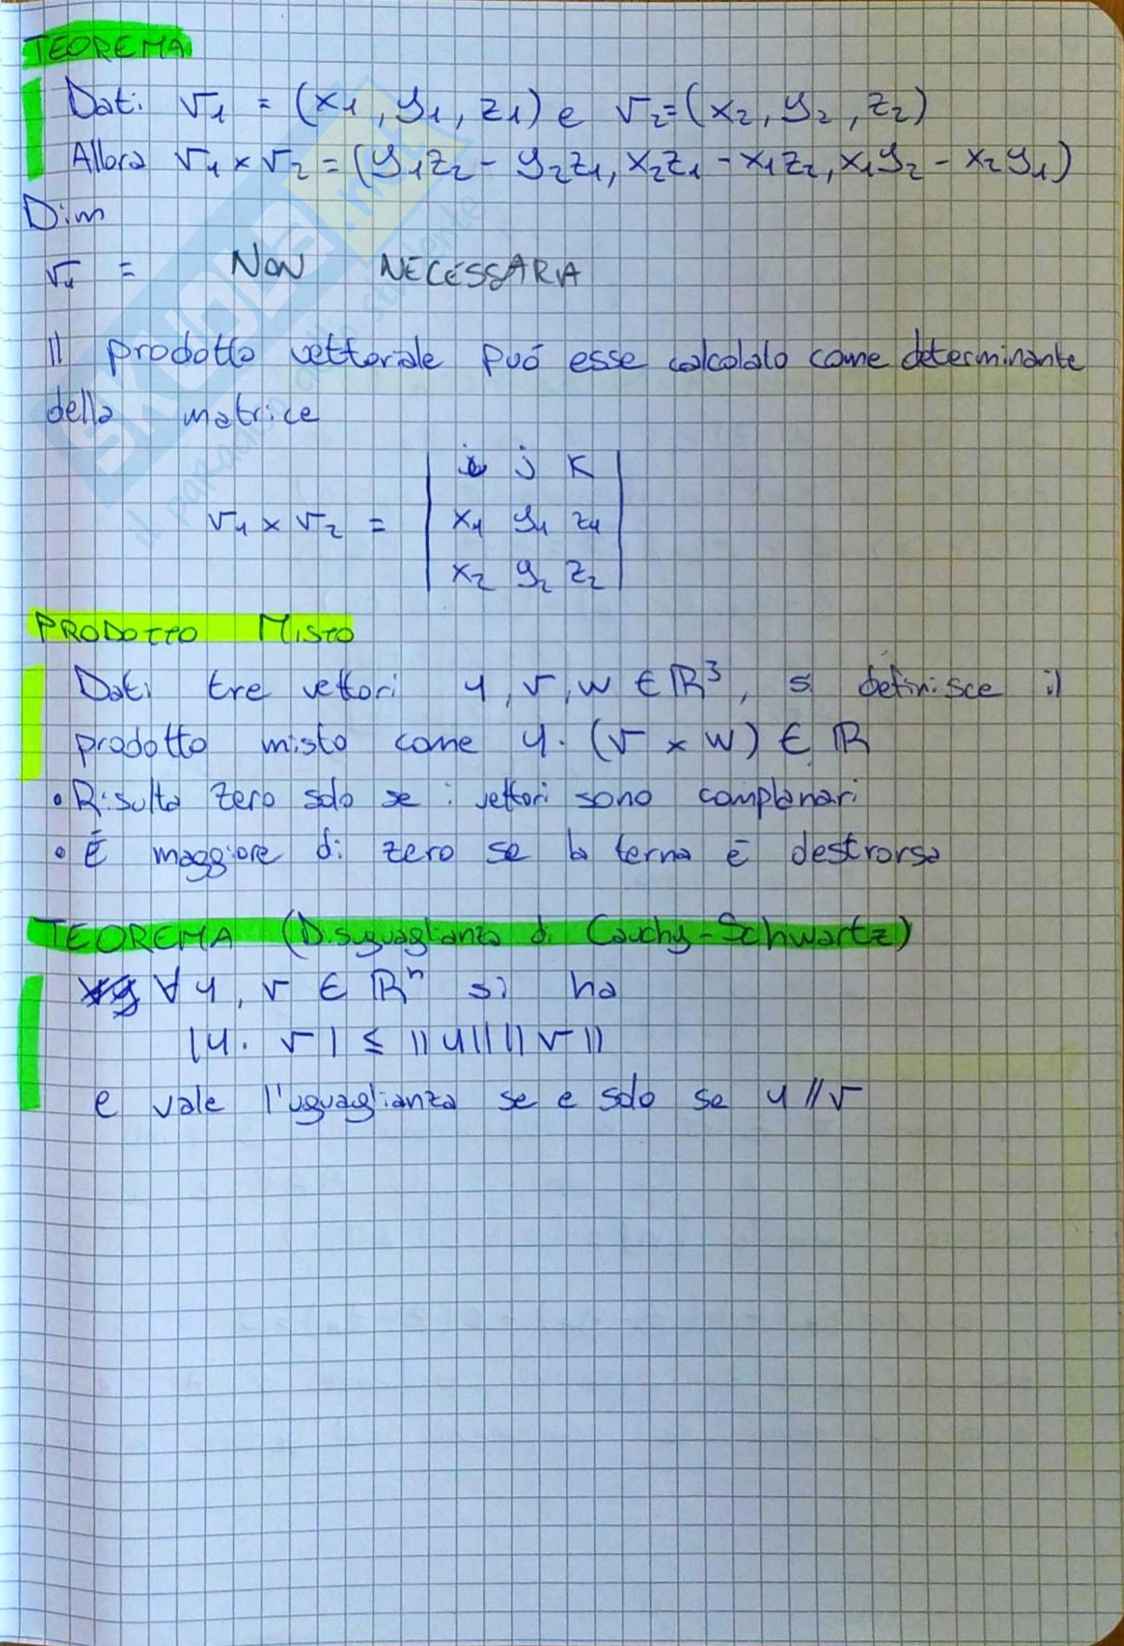 TEOREMA
Dati v₁ = (x₁, y₁, z₁) e v₂=(x₂, y₂, z₂)
Allora v₁ × v₂ = (y₁z₂ - y₂z₁, x₂z₁ - x₁z₂, x₁y₂ - x₂y₁)
Dim
v₁ = NON NECESSARIA
Il prodotto vettoriale puó esse calcolato come determinante
della matrice
| i j k |
v₁ × v₂ = | x₁ y₁ z₁ |
| x₂ y₂ z₂ |
PRODOTTO MISTO
Dati tre vettori u, v, w ∈ ℝ³, si definisce il
prodotto misto come u · (v × w) ∈ ℝ
• Risulta zero solo se i vettori sono complanari
• É maggiore di zero se la terna é destrorsa
TEOREMA (Disuguaglianza di Cauchy-Schwartz)
∀ u, v ∈ ℝⁿ si ha
|u · v| ≤ ||u|| ||v||
e vale l'uguaglianza se e solo se u // v
SKUOLA.net